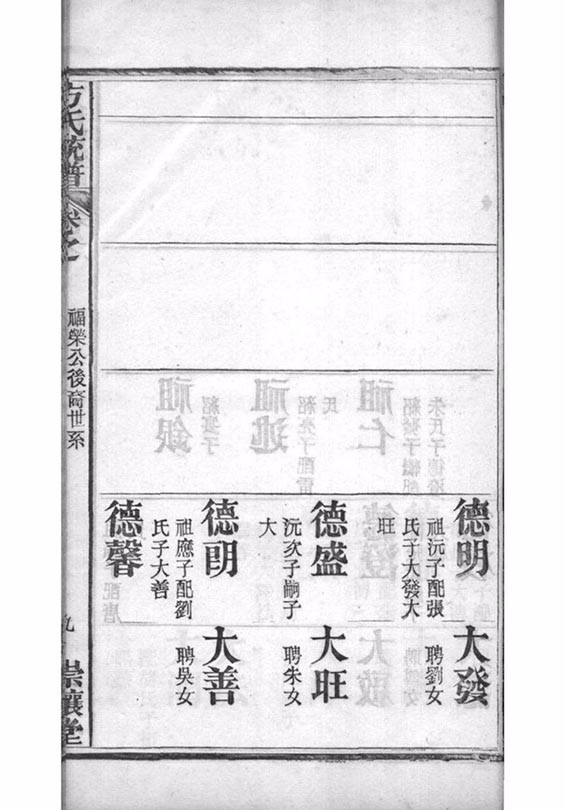 德明
祖沅子配張
氏子大發大
旺
德盛
沅次子嗣子
大
德朗
祖應子配劉
氏子大善
德馨
大發
聘劉女
大旺
聘朱女
大善
聘吳女
方氏統譜
卷之
福榮公後裔世系
九
崇讓堂